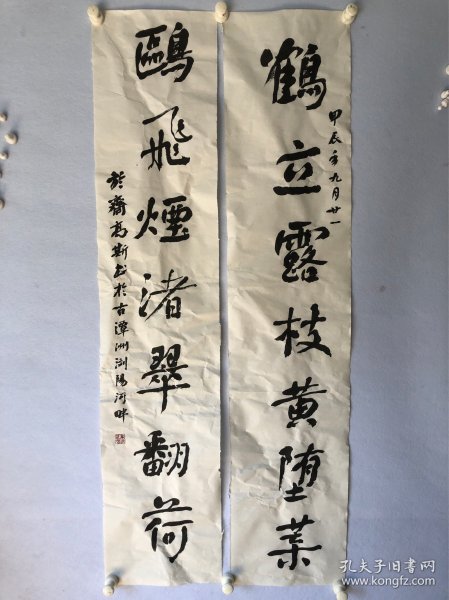 鶴立露枝黄堕葉
甲辰年九月廿一
鷗飛煙渚翠翻荷
齋高斯书於古潭洲浏陽河畔
孔夫子旧书网
www.kongfz.com